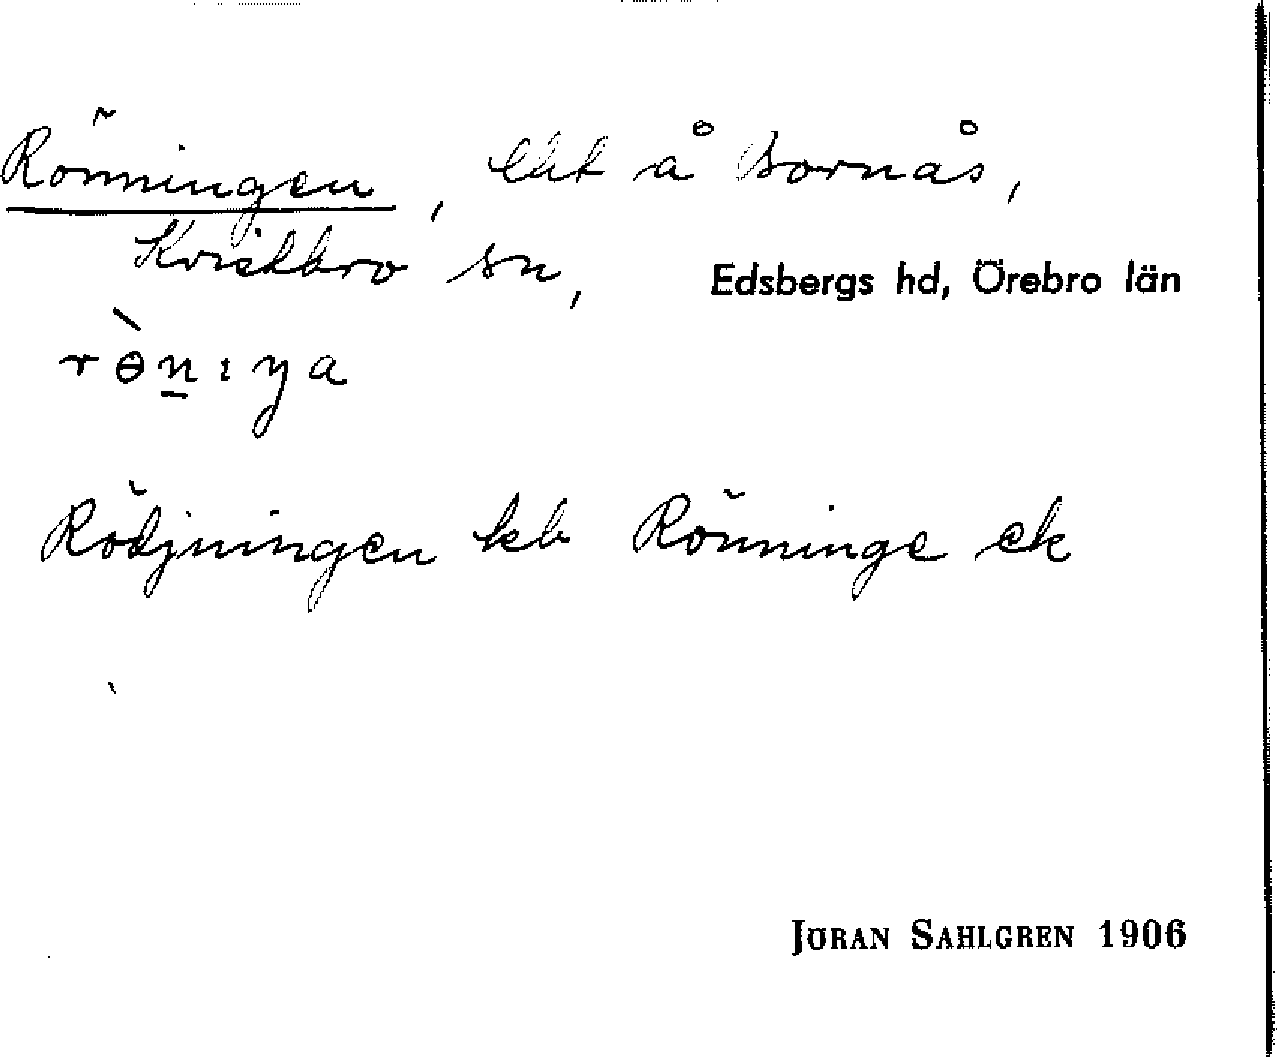 Rönningen, lht å Bornås,
Kvistbro sn, Edsbergs hd, Örebro län
rө̀n̲ıŋa
Rödjningen kb Rönninge ek
JÖRAN SAHLGREN 1906